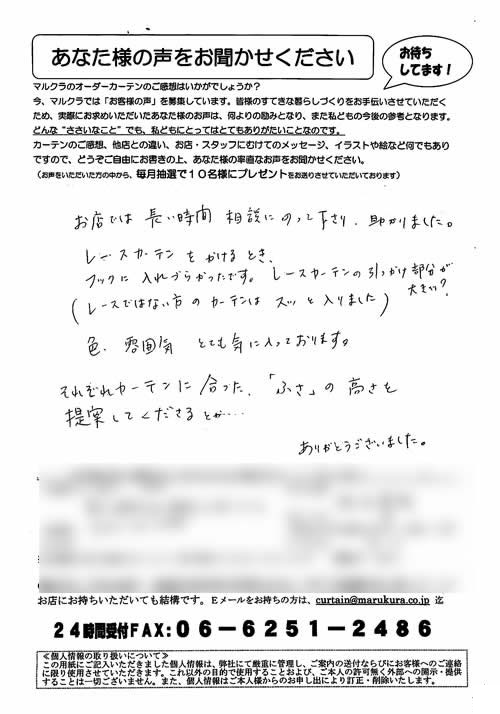 あなた様の声をお聞かせください
お待ち
してます！
マルクラのオーダーカーテンのご感想はいかがでしょうか？
今、マルクラでは「お客様の声」を募集しています。皆様のすてきな暮らしづくりをお手伝いさせていただく
ため、実際にお求めいただいたあなた様のお声は、何よりの励みとなり、また私どもの今後の参考となります。
どんな“ささいなこと”でも、私どもにとってはとてもありがたいことなのです。
カーテンのご感想、他店との違い、お店・スタッフにむけてのメッセージ、イラストや絵など何でもあり
ですので、どうぞご自由にお書きの上、あなた様の率直なお声をお聞かせください。
（お声をいただいた方の中から、毎月抽選で１０名様にプレゼントをお送りさせていただいております）
お店では 長い時間 相談にのって下さり、助かりました。
レースカーテン を かけるとき、
フックに 入れづらかったです。 レースカーテンの引っかけ部分が
大きい？
（レースではない方のカーテンは スッと入りました）
色、雰囲気 とても気に入っております。
それぞれカーテンに合った、「ふさ」の高さを
提案してくださるとか‥‥
ありがとうございました。
お店にお持ちいただいても結構です。Ｅメールをお持ちの方は、curtain@marukura.co.jp 迄
２４時間受付ＦＡＸ：０６－６２５１－２４８６
≪個人情報の取り扱いについて≫
この用紙にご記入いただきました個人情報は、弊社にて厳重に管理し、ご案内の送付ならびにお客様へのご連絡
に限り使用させていただきます。これ以外の目的で使用することおよび、ご本人の許可無く外部への開示・提供
することは一切ございません。また、個人情報はご本人様からのお申し出により訂正・削除いたします。